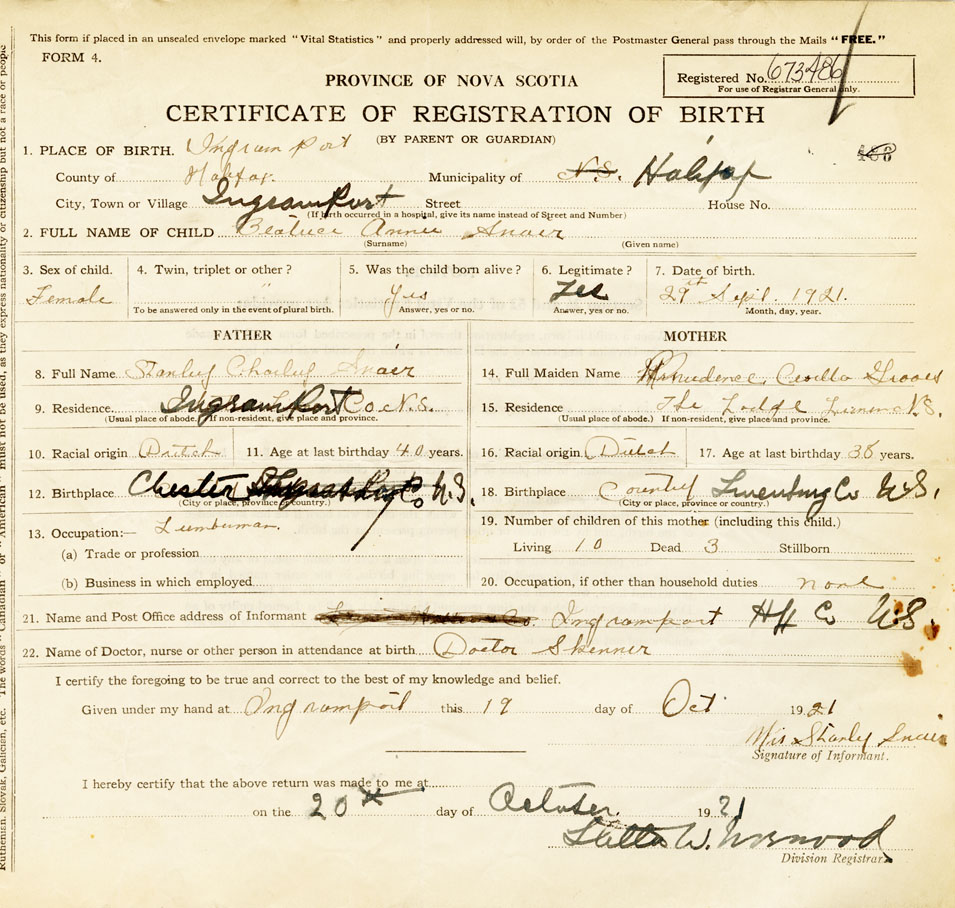 This form if placed in an unsealed envelope marked "Vital Statistics" and properly addressed will, by order of the Postmaster General pass through the Mails "FREE."
FORM 4.
PROVINCE OF NOVA SCOTIA
Registered No. 673486
For use of Registrar General only.
CERTIFICATE OF REGISTRATION OF BIRTH
(BY PARENT OR GUARDIAN)
1. PLACE OF BIRTH. Ingram Port
County of Halifax. Municipality of N.S. Halifax
City, Town or Village IngramPort Street House No.
(If birth occurred in a hospital, give its name instead of Street and Number)
2. FULL NAME OF CHILD Beatrice Annie Snair
(Surname) (Given name)
3. Sex of child. 4. Twin, triplet or other? 5. Was the child born alive? 6. Legitimate? 7. Date of birth.
Female " Yes Yes 29th Sept. 1921.
To be answered only in the event of plural birth. Answer, yes or no. Answer, yes or no. Month, day, year.
FATHER MOTHER
8. Full Name Stanley Charley Snair 14. Full Maiden Name Prudence
9. Residence IngramPort Co. N.S. 15. Residence The Lodge N.S.
(Usual place of abode.) If non-resident, give place and province. (Usual place of abode.) If non-resident, give place and province.
10. Racial origin Dutch 11. Age at last birthday 40 years. 16. Racial origin Dutch 17. Age at last birthday 38 years.
12. Birthplace Chester Co N.S. 18. Birthplace Country Lunenburg Co N.S.
(City or place, province or country.) (City or place, province or country.)
13. Occupation:— Lumberman. 19. Number of children of this mother (including this child.)
(a) Trade or profession Living 10 Dead 3 Stillborn
(b) Business in which employed 20. Occupation, if other than household duties none
21. Name and Post Office address of Informant Ingramport Hfx Co N.S.
22. Name of Doctor, nurse or other person in attendance at birth Doctor Skenner
I certify the foregoing to be true and correct to the best of my knowledge and belief.
Given under my hand at Ingramport this 19 day of Oct 1921
Mrs Stanley Snair
Signature of Informant.
I hereby certify that the above return was made to me at
on the 20th day of October. 1921
W. Norwood
Division Registrar.
Ruthenian, Slovak, Galician, etc. The words "Canadian" or "American" must not be used, as they express nationality or citizenship but not a race or people